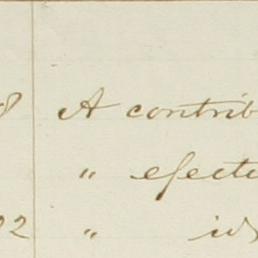 8 A contrib
" efecte
92 " id